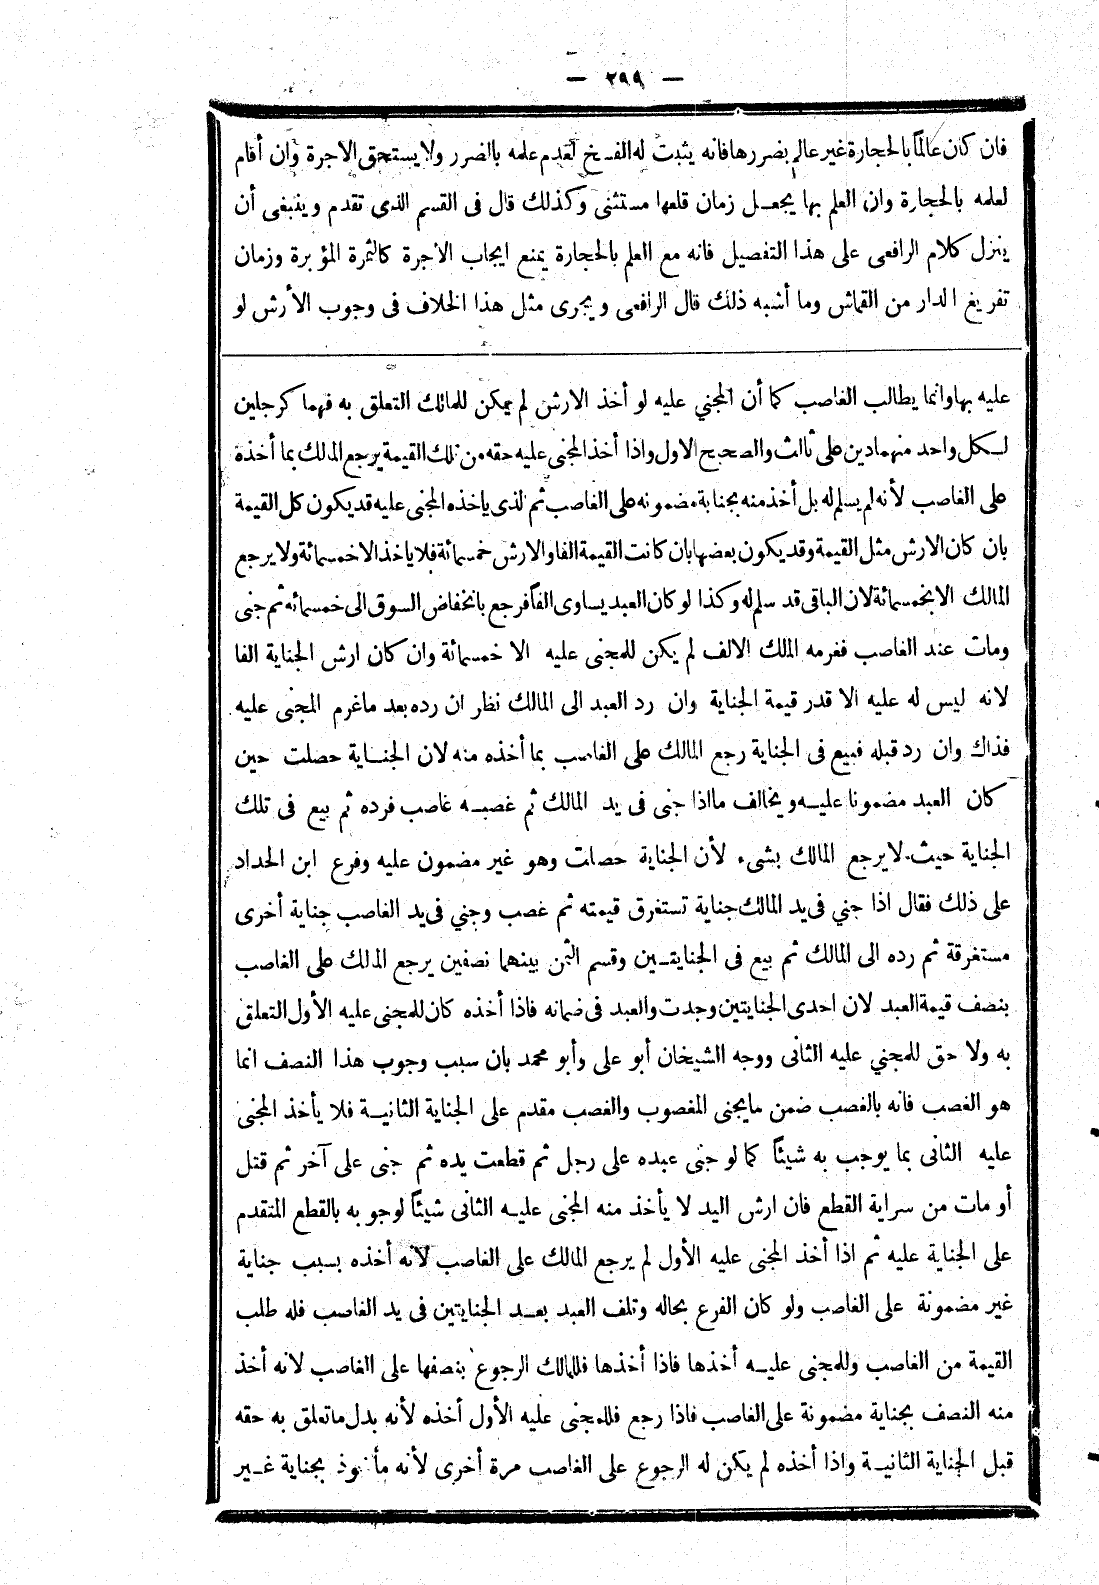 — ٢٩٩ —
فان كان عالماً بالحجارة غير عالم بضررها فانه يثبت له الفسخ لتقدم علمه بالضرر ولا يستحق الاجرة وان أقام
لعلمه بالحجارة وان العلم بها يجعل زمان قلعها مستثنى وكذلك قال فى القسم الذى تقدم وينبغى أن
ينزل كلام الرافعى على هذا التفصيل فانه مع العلم بالحجارة يمنع ايجاب الأجرة كالثمرة المؤبرة وزمان
تفريغ الدار من القماش وما أشبه ذلك قال الرافعى ويجرى مثل هذا الخلاف فى وجوب الأرش لو
عليه بها وانما يطالب الغاصب كما أن المجني عليه لو أخذ الارش لم يمكن للمالك التعلق به فهما كرجلين
لكل واحد منهما دين على ثالث والصحيح الاول واذا أخذ المجنى عليه حقه من تلك القيمة يرجع المالك بما أخذه
على الغاصب لأنه لم يسلم له بل أخذ منه بجناية مضمونه على الغاصب ثم لذى ياخذه المجنى عليه قد يكون كل القيمة
بان كان الارش مثل القيمة وقد يكون بعضها بان كانت القيمة الفا والارش خمسمائة فلا ياخذ الا خمسمائة ولا يرجع
المالك الا بخمسمائة لان الباقى قد سلم له وكذا لو كان العبد يساوى الفاً فرجع بانخفاض السوق الى خمسمائه ثم جنى
ومات عند الغاصب فغرمه المالك الالف لم يكن للمجنى عليه الا خمسمائة وان كان ارش الجناية الفا
لانه ليس له عليه الا قدر قيمة الجناية وان رد العبد الى المالك نظر ان رده بعد ماغرم المجنى عليه
فذاك وان رد قبله فبيع فى الجناية رجع المالك على الغاصب بما أخذه منه لان الجناية حصلت حين
كان العبد مضمونا عليه ويخالف مااذا جنى فى يد المالك ثم غصبه غاصب فرده ثم بيع فى تلك
الجناية حيث لا يرجع المالك بشىء لأن الجناية حصلت وهو غير مضمون عليه وفرع ابن الحداد
على ذلك فقال اذا جني فى يد المالك جناية تستغرق قيمته ثم غصب وجني فى يد الغاصب جناية أخرى
مستغرقة ثم رده الى المالك ثم بيع فى الجنايتين وقسم الثمن بينهما نصفين يرجع المالك على الغاصب
بنصف قيمة العبد لان احدى الجنايتين وجدت والعبد فى ضمانه فاذا أخذه كان للمجنى عليه الأول التعلق
به ولا حق للمجني عليه الثانى ووجه الشيخان أبو على وأبو محمد بان سبب وجوب هذا النصف انما
هو الغصب فانه بالغصب ضمن مايجنى المغصوب والغصب مقدم على الجناية الثانية فلا يأخذ المجنى
عليه الثانى بما يوجب به شيئاً كما لو جنى عبده على رجل ثم قطعت يده ثم جنى على آخر ثم قتل
أو مات من سراية القطع فان ارش اليد لا يأخذ منه المجنى عليه الثانى شيئاً لوجوبه بالقطع المتقدم
على الجناية عليه ثم اذا أخذ المجنى عليه الأول لم يرجع المالك على الغاصب لأنه أخذه بسبب جناية
غير مضمونة على الغاصب ولو كان الفرع بحاله وتلف العبد بعد الجنايتين فى يد الغاصب فله طلب
القيمة من الغاصب وللمجنى عليه أخذها فاذا أخذها فللمالك الرجوع بنصفها على الغاصب لانه أخذ
منه النصف بجناية مضمونة على الغاصب فاذا رجع فللمجنى عليه الأول أخذه لأنه بدل ماتعلق به حقه
قبل الجناية الثانية واذا أخذه لم يكن له الرجوع على الغاصب مرة أخرى لأنه مأخوذ بجناية غير